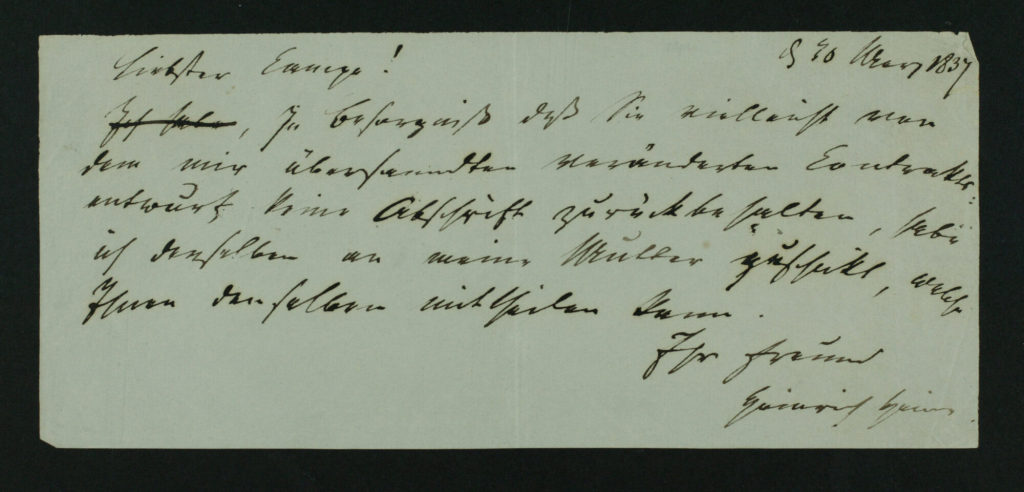 d 30 Merz 1837
Liebster Campe!
Ich habe, In Besorgniß daß Sie vielleicht von
dem mir übersandten veränderten Contrakts-
entwurf keine Abschrift zurückbehalten, habe
ich denselben an meine Mutter geschickt, welche
Ihnen denselben mittheilen kann.
Ihr Freund
Heinrich Heine.